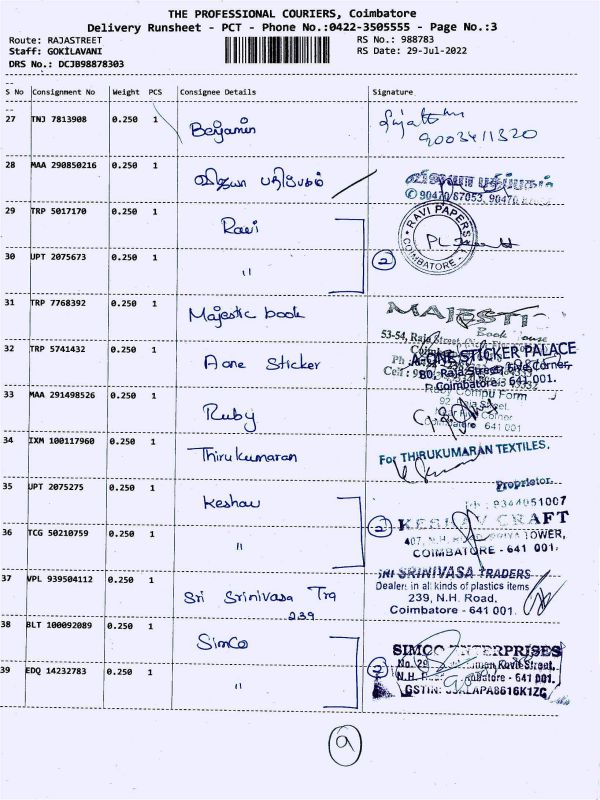 THE PROFESSIONAL COURIERS, Coimbatore
Delivery Runsheet - PCT - Phone No.:0422-3505555 - Page No.:3
Route: RAJASTREET
Staff: GOKILAVANI
DRS No.: DCJB98878303
RS No.: 988783
RS Date: 29-Jul-2022
S No Consignment No Weight PCS Consignee Details Signature
27 TNJ 7813908 0.250 1 Benjamin
9003411320
28 MAA 290850216 0.250 1 விஜயா பதிப்பகம்
விஜயா பதிப்பகம்
29 TRP 5017170 0.250 1 Ravi
RAVI PAPERS
COIMBATORE
30 UPT 2075673 0.250 1 "
2
31 TRP 7768392 0.250 1 Majestic book
MAJESTI
Book
53-54, Raja Street
32 TRP 5741432 0.250 1 A one Sticker
A-ONE STICKER PALACE
80, Raja Street, Five Corner,
Coimbatore - 641 001.
33 MAA 291498526 0.250 1 Ruby
Ruby Compu Form
92, Raja Street,
Corner
641 001
34 IXM 100117960 0.250 1 Thirukumaran
For THIRUKUMARAN TEXTILES.
Proprietor.
35 UPT 2075275 0.250 1 Keshav
Ph: 9344051007
KESHAV CRAFT
407, N.H. ROAD, TOWER,
COIMBATORE - 641 001.
36 TCG 50210759 0.250 1 "
2
37 VPL 939504112 0.250 1 Sri Srinivasa Tra
239
SRI SRINIVASA TRADERS
Dealer: in all kinds of plastics items
239, N.H. Road,
Coimbatore - 641 001.
38 BLT 100092089 0.250 1 Simco
SIMCO ENTERPRISES
No. 29 Kovil Street,
N.H. Coimbatore - 641 001.
39 EDQ 14232783 0.250 1 "
2
9